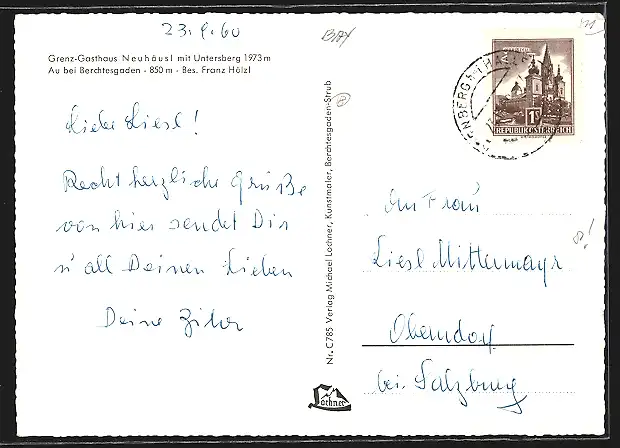 23.9.60
Grenz-Gasthaus Neuhäusl mit Untersberg 1973 m
Au bei Berchtesgaden - 850 m - Bes. Franz Hölzl
Liebe Liesl!
Recht herzliche Grüße
von hier sendet Dir
u' all Deinen Lieben
Deine
Nr. C785 Verlag Michael Lochner, Kunstmaler, Berchtesgaden-Strub
Lochner
REPUBLIK ÖSTERREICH
1S
An Frau
Liesl Mittermayr
Oberndorf
bei Salzburg